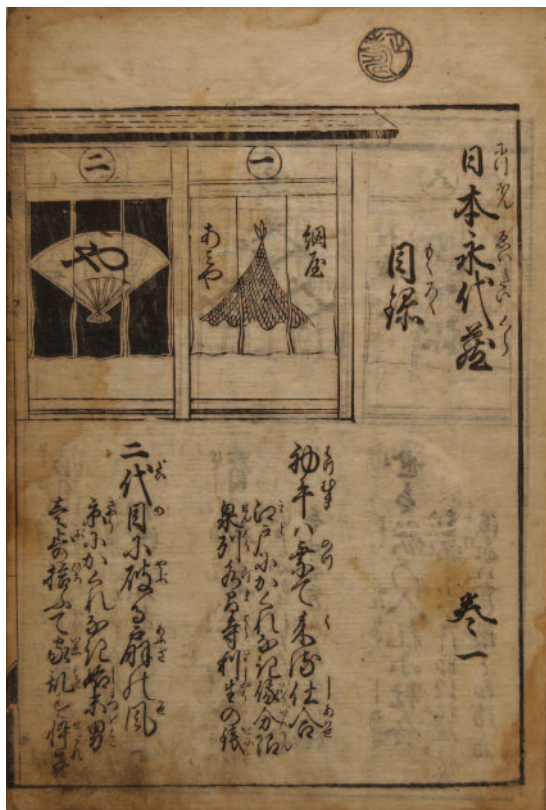 日本永代蔵
につほんゑいたいくら
目録
もくろく
巻一
一
網屋
あみや
二
や
初午ハ乗て来る仕合
江戸にかくれなき俄分限
泉州水間寺利生の銭
二代目に破る扇の風
京にかくれなき始末男
壱歩拾ふて家乱す悴子